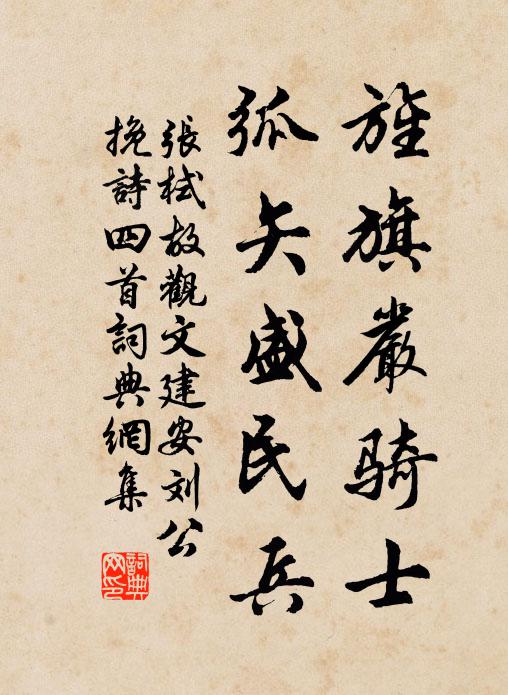 旌旗嚴骑士
弧矢盛民兵
張栻故觀文建安刘公
挽詩四首詞典網集
詞典网印